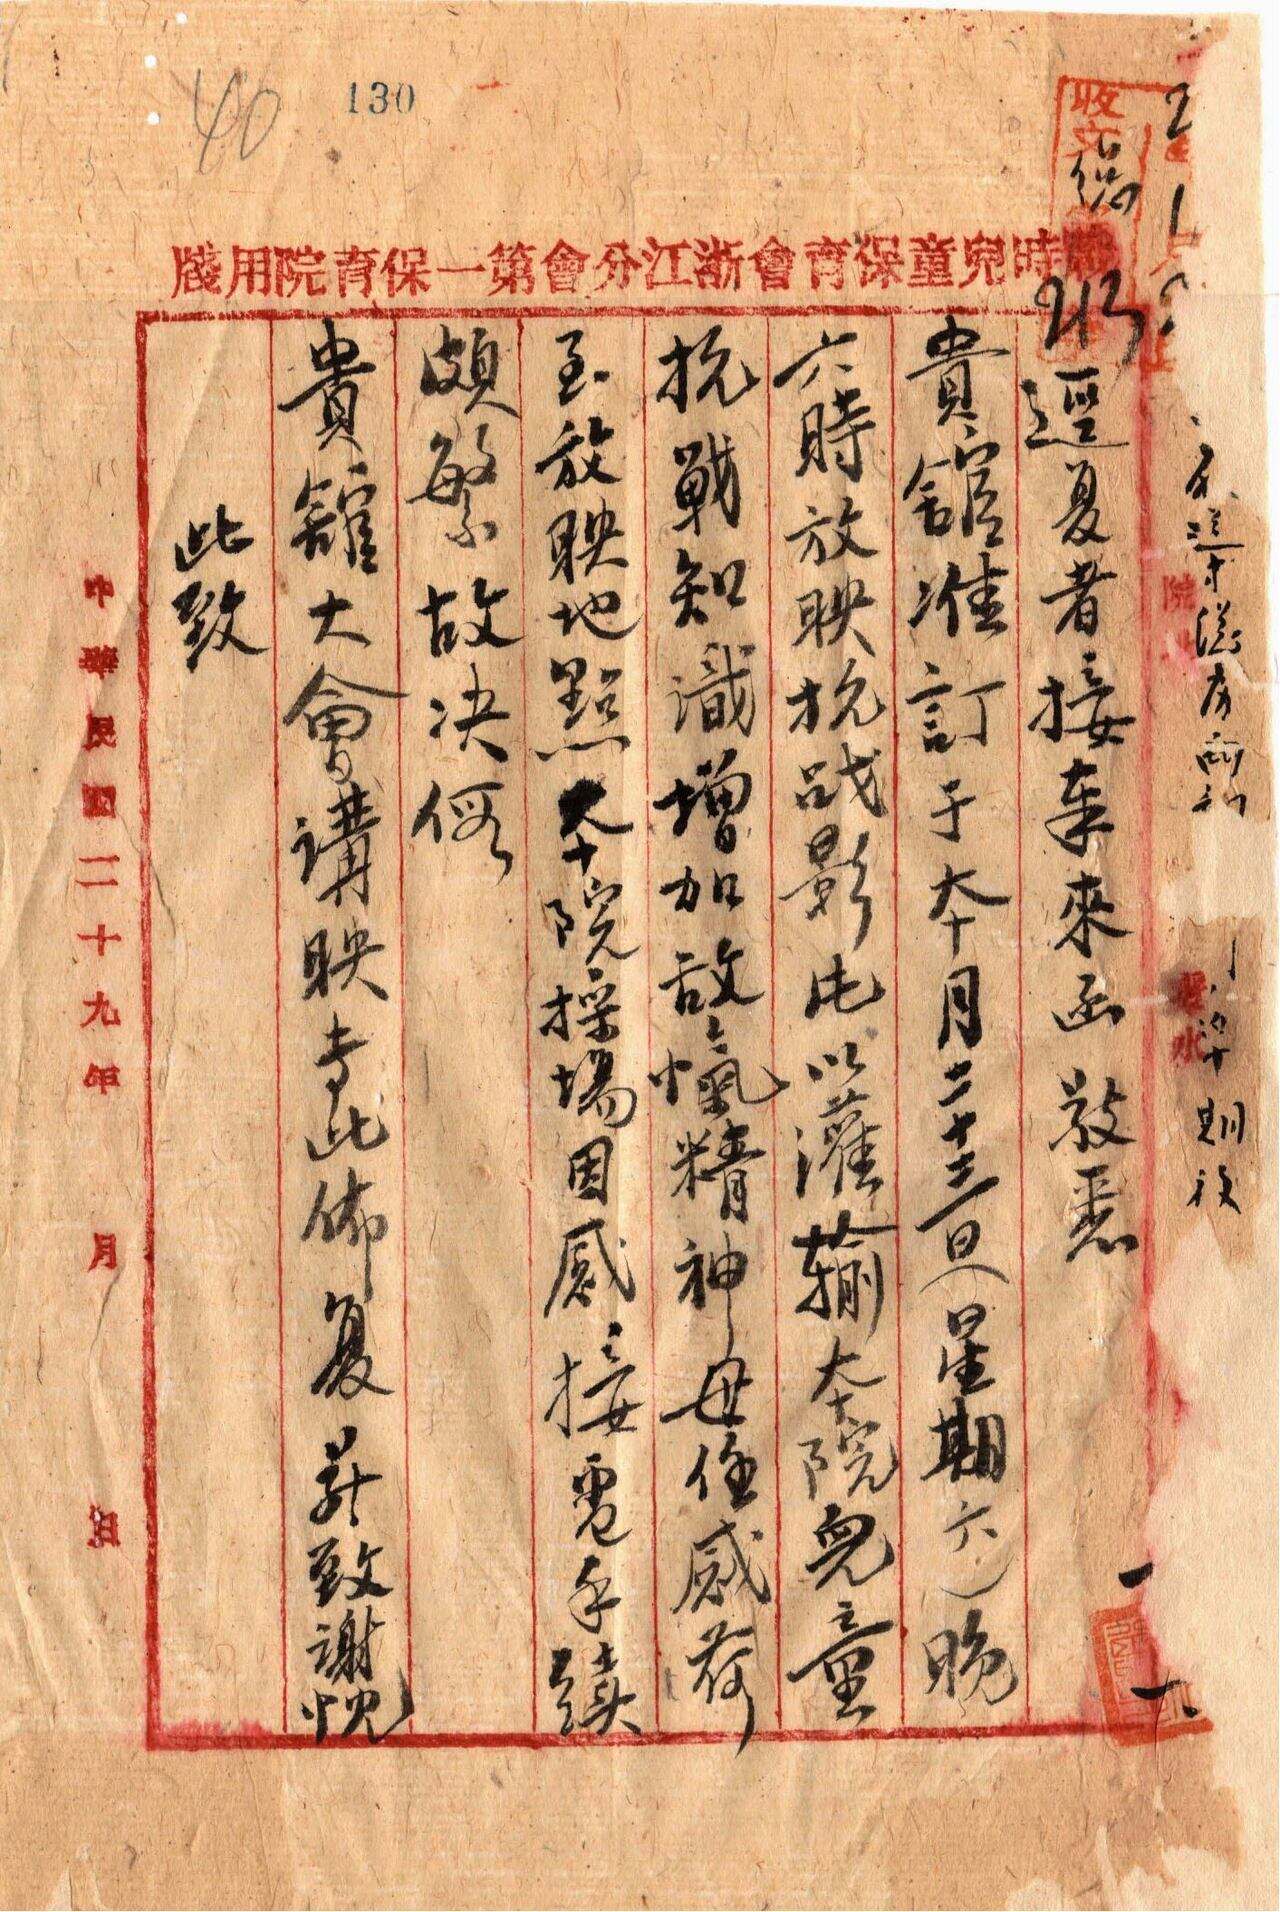 130
40
收文
號
213
時兒童保育會浙江分會第一保育院用牋
逕复者接奉來函敬悉
貴館准訂于本月二十三日(星期六)晚
六時放映抗战影片以灌輸本院兒童
抗戰知識增加敌愾精神毋任感荷
至放映地點本院操場因感接电手續
頗繁故决假
貴舘大會講映專此佈复并致謝忱
此致
中華民國二十九年 月 日